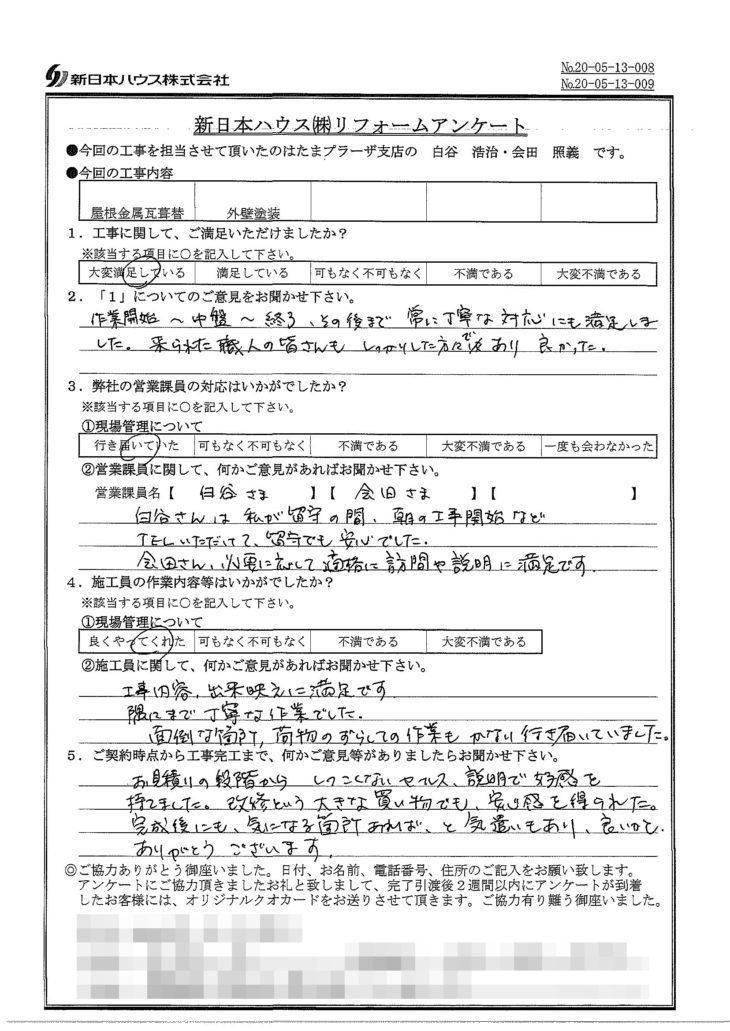 新日本ハウス株式会社
No.20-05-13-008
No.20-05-13-009
新日本ハウス㈱リフォームアンケート
●今回の工事を担当させて頂いたのはたまプラーザ支店の 白谷 浩治・会田 照義 です。
●今回の工事内容
屋根金属瓦葺替 外壁塗装
1．工事に関して、ご満足いただけましたか？
※該当する項目に○を記入して下さい。
大変満足している 満足している 可もなく不可もなく 不満である 大変不満である
2．「1」についてのご意見をお聞かせ下さい。
作業開始～中盤～終了、その後まで 常に丁寧な対応にも満足しま
した。来られた職人の皆さんも しっかりした方々で あり 良かった.
3．弊社の営業課員の対応はいかがでしたか？
※該当する項目に○を記入して下さい。
①現場管理について
行き届いていた 可もなく不可もなく 不満である 大変不満である 一度も会わなかった
②営業課員に関して、何かご意見があればお聞かせ下さい。
営業課員名【 白谷さま 】【 会田さま 】【 】
白谷さんは 私が留守の間、朝の工事開始など
TELいただけて、留守でも安心でした.
会田さん、必要に応じて適格に訪問や説明に満足です.
4．施工員の作業内容等はいかがでしたか？
※該当する項目に○を記入して下さい。
①現場管理について
良くやってくれた 可もなく不可もなく 不満である 大変不満である
②施工員に関して、何かご意見があればお聞かせ下さい。
工事内容、出来映えに満足です.
隅にまで丁寧な作業でした.
面倒な箇所、荷物のずらしての作業も かない行き届いていました。
5．ご契約時点から工事完工まで、何かご意見等がありましたらお聞かせ下さい。
お見積りの段階から しつこくないセールス、説明で好感を
持てました。改修という大きな買い物でも、安心感を得られた。
完成後にも、気になる箇所あれば、と気遣いもあり、良いかと.
ありがとうございます.
◎ご協力ありがとう御座いました。日付、お名前、電話番号、住所のご記入をお願い致します。
アンケートにご協力頂きましたお礼と致しまして、完了引渡後2週間以内にアンケートが到着
したお客様には、オリジナルクオカードをお送りさせて頂きます。ご協力有り難う御座いました。